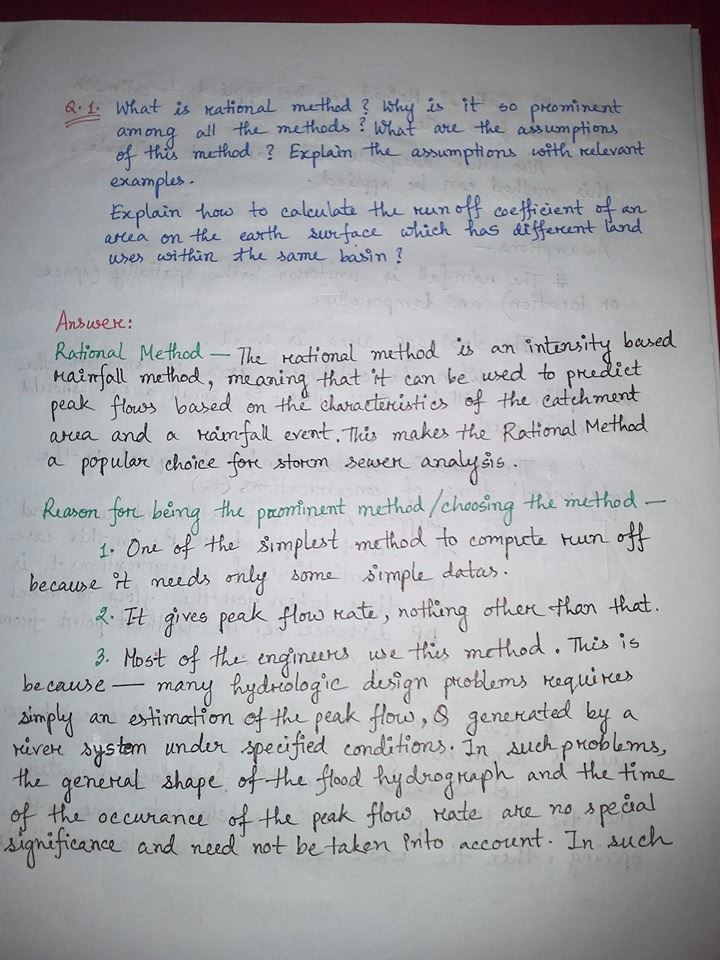 Q.1. What is rational method? Why is it so prominent
among all the methods? What are the assumptions
of this method? Explain the assumptions with relevant
examples.
Explain how to calculate the run off coefficient of an
area on the earth surface which has different land
uses within the same basin?
Answer:
Rational Method — The rational method is an intensity based
rainfall method, meaning that it can be used to predict
peak flows based on the characteristics of the catchment
area and a rainfall event. This makes the Rational Method
a popular choice for storm sewer analysis.
Reason for being the prominent method/choosing the method —
1. One of the simplest method to compute run off
because it needs only some simple datas.
2. It gives peak flow rate, nothing other than that.
3. Most of the engineers use this method. This is
because — many hydrologic design problems requires
simply an estimation of the peak flow, Q generated by a
river system under specified conditions. In such problems,
the general shape of the flood hydrograph and the time
of the occurance of the peak flow rate are no special
significance and need not be taken into account. In such